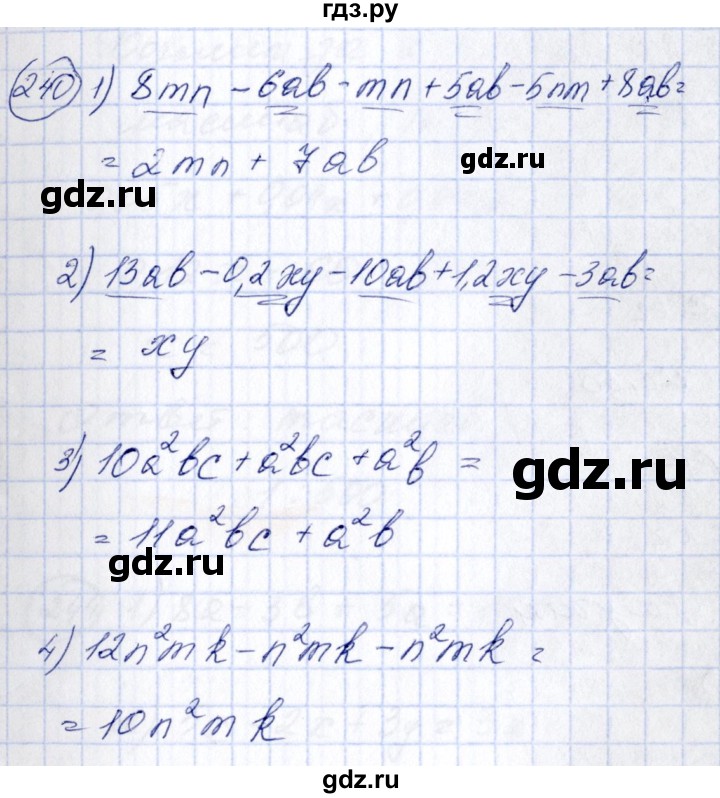 гдз.ру
240 1) 8mn - 6ab - mn + 5ab - 5nm + 8ab =
= 2mn + 7ab
gdz.ru
gdz.ru
2) 13ab - 0,2xy - 10ab + 1,2xy - 3ab =
= xy
3) 10a²bc + a²bc + a²b =
gdz.ru
= 11a²bc + a²b
gdz.ru
4) 12n²mk - n²mk - n²mk =
= 10n²mk
gdz.ru